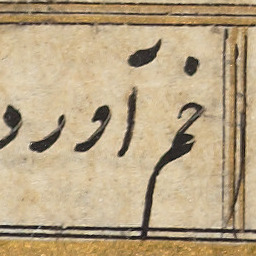 خم آورد